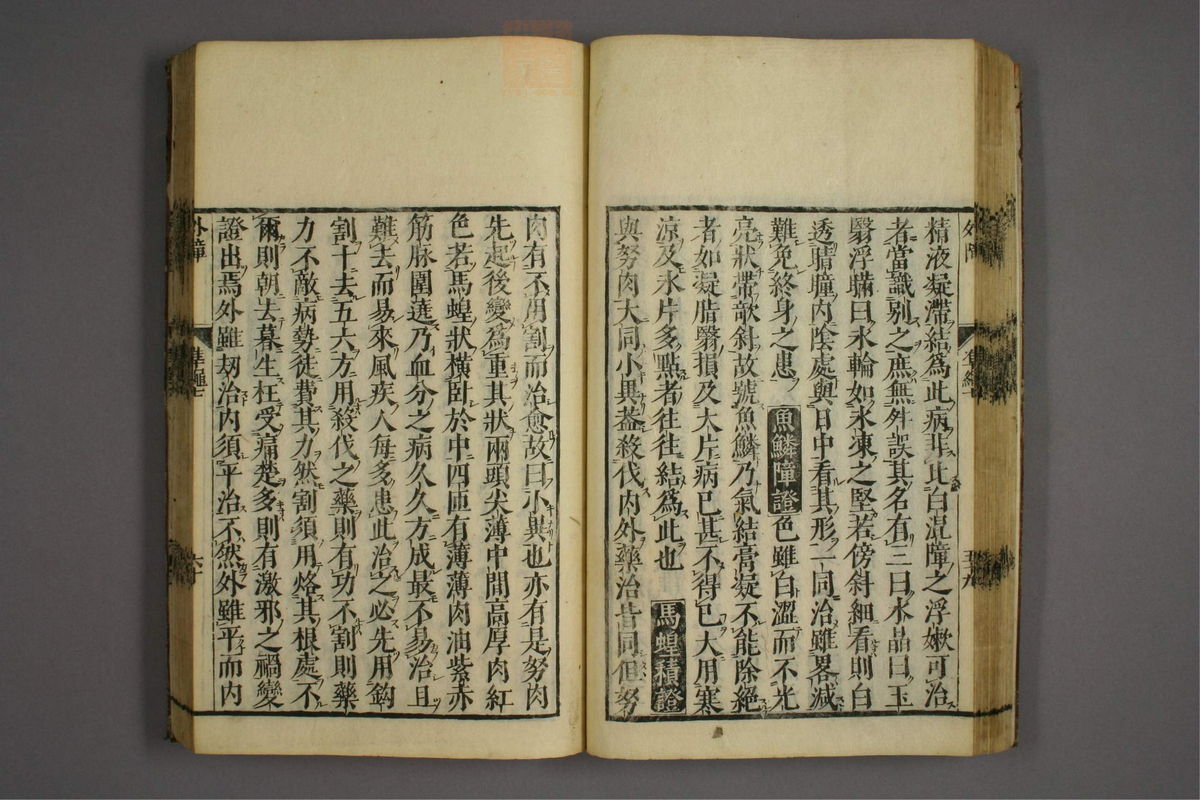 精液凝滯結為此病非比白混障之浮嫰可治
者當識別之庶無舛誤其名有三曰水晶曰玉
翳浮瞞曰氷輪如氷凍之堅若傍斜細看則白
透睛瞳内陰處與日中看其形一同治雖畧減
難免終身之患 魚鱗障證 色雖白澀而不光
亮狀帶歆斜故號魚鱗乃氣結膏凝不能除絕
者如凝脂翳損及大片病已甚不得已大用寒
涼及氷片多點者往往結為此也 馬蝗積證
與努肉大同小異葢殺伐内外藥治皆同但努
肉有不用割而治愈故曰小異也亦有是努肉
先起後變為重其狀兩頭尖薄中間高厚肉紅
色若馬蝗狀橫卧於中四匝有薄薄肉油紫赤
筋脉圍遶乃血分之病久久方成最不易治且
難去而易來風疾人每多患此治之必先用鈎
割十去五六方用殺伐之藥則有功不割則藥
力不敵病勢徒費其力然割須用烙其根處不
爾則朝去暮生枉受痛楚多則有激邪之禍變
證出焉外雖刼治内須平治不然外雖平而内
外障 準繩七 六十